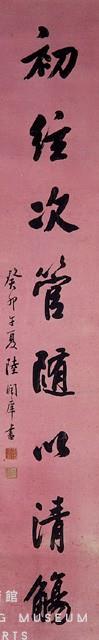 初絃次管随以清觴
癸卯午夏陸潤庠書
館
G MUSEUM
RTS